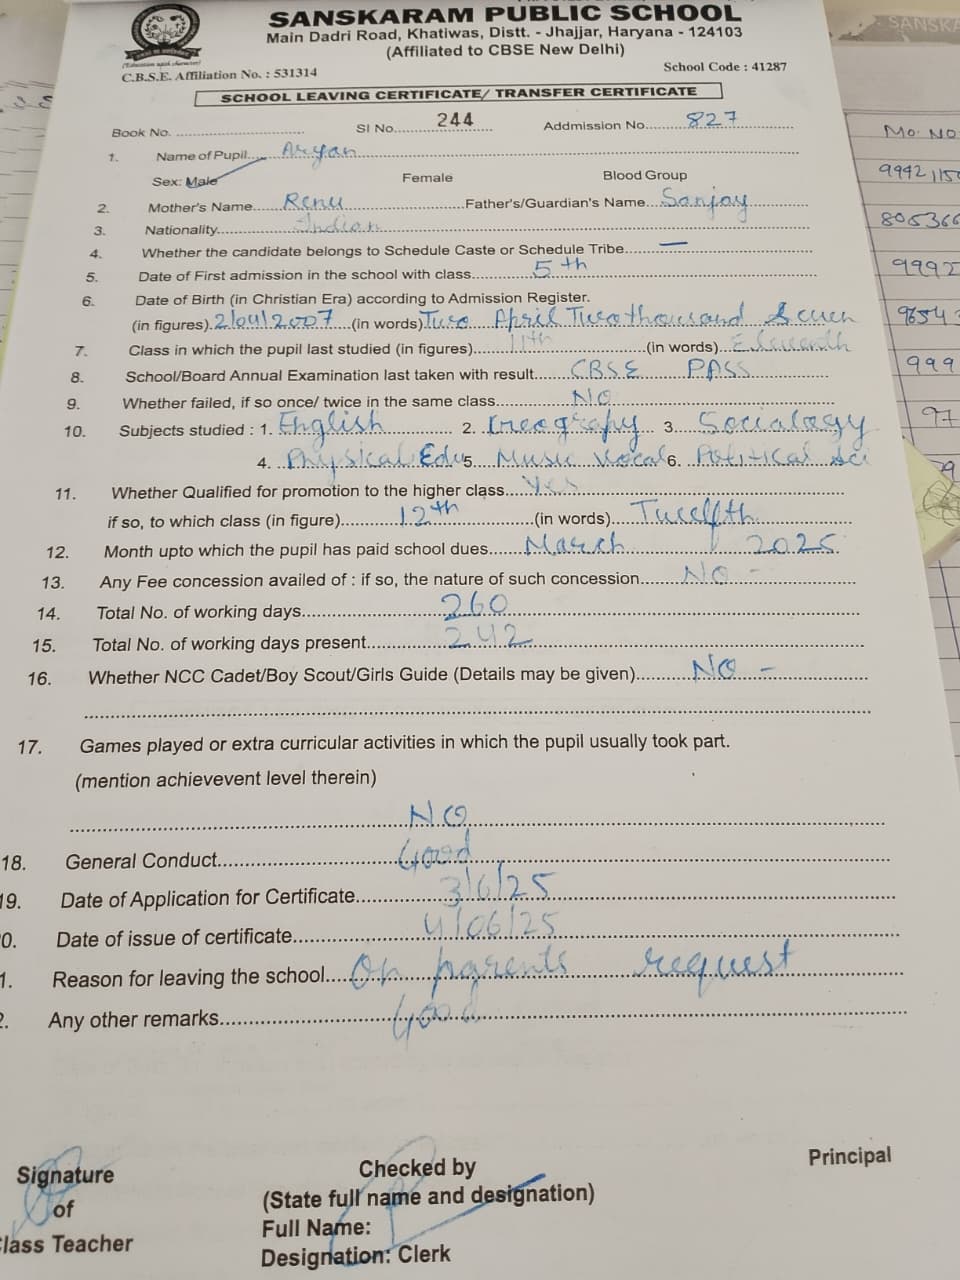 SANSKARAM PUBLIC SCHOOL
Main Dadri Road, Khatiwas, Distt. - Jhajjar, Haryana - 124103
(Affiliated to CBSE New Delhi)
C.B.S.E. Affiliation No. : 531314 School Code : 41287
SCHOOL LEAVING CERTIFICATE/ TRANSFER CERTIFICATE
Book No. SI No. 244 Addmission No. 827
1. Name of Pupil Aryan
Sex: Male Female Blood Group
2. Mother's Name Renu Father's/Guardian's Name Sanjay
3. Nationality Indian
4. Whether the candidate belongs to Schedule Caste or Schedule Tribe —
5. Date of First admission in the school with class 5th
6. Date of Birth (in Christian Era) according to Admission Register.
(in figures) 2/04/2007 (in words) Two April Two thousand Seven
7. Class in which the pupil last studied (in figures) 11th (in words) Eleventh
8. School/Board Annual Examination last taken with result CBSE PASS
9. Whether failed, if so once/ twice in the same class NO
10. Subjects studied : 1. English 2. Geography 3. Socialogy
4. Physical Edu 5. Music Vocal 6. Political Sci
11. Whether Qualified for promotion to the higher class Yes
if so, to which class (in figure) 12th (in words) Twelfth
12. Month upto which the pupil has paid school dues March 2025
13. Any Fee concession availed of : if so, the nature of such concession NO -
14. Total No. of working days 260
15. Total No. of working days present 242
16. Whether NCC Cadet/Boy Scout/Girls Guide (Details may be given) NO -
17. Games played or extra curricular activities in which the pupil usually took part.
(mention achievevent level therein)
NO
18. General Conduct Good
19. Date of Application for Certificate 3/6/25
0. Date of issue of certificate 4/06/25
1. Reason for leaving the school On parents request
2. Any other remarks Good
Signature
of
lass Teacher
Checked by
(State full name and designation)
Full Name:
Designation: Clerk
Principal
SANSKA
Mo. NO
9992
999
97